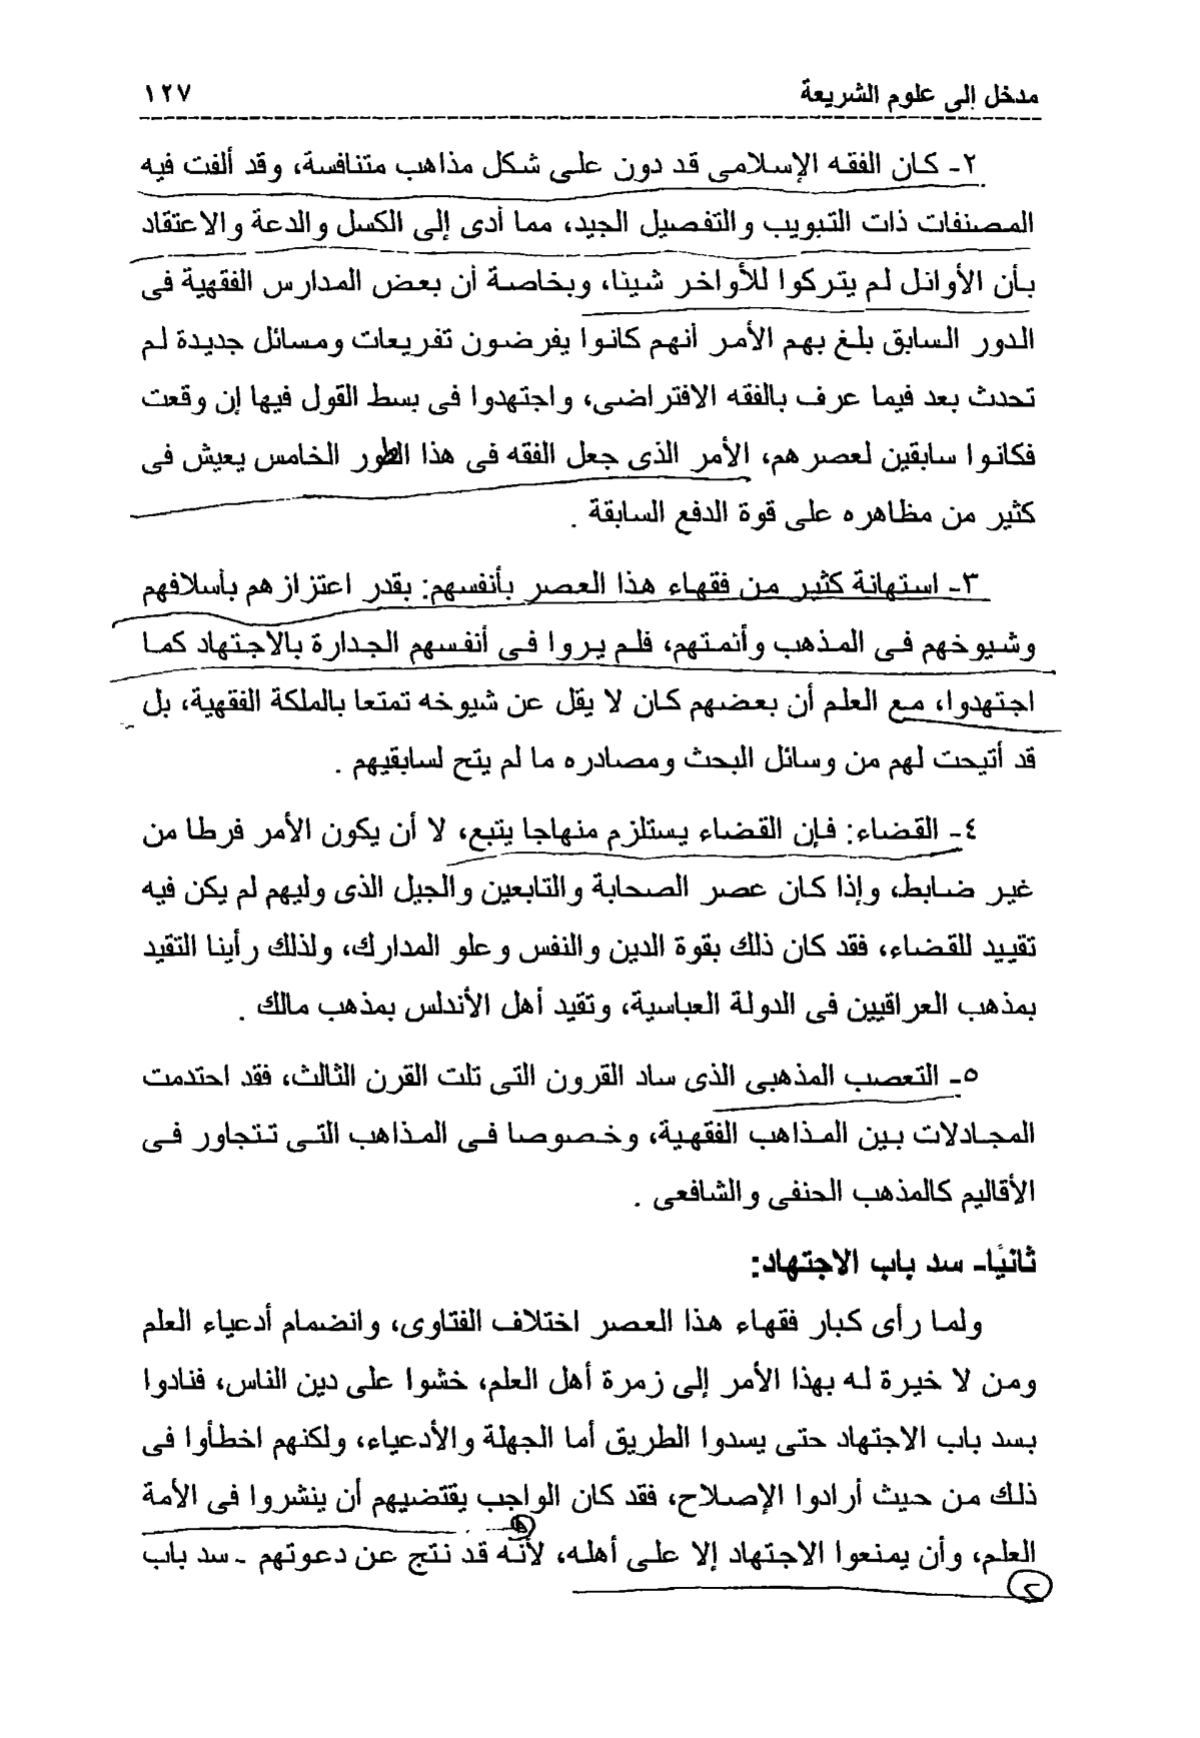 مدخل إلى علوم الشريعة ١٢٧
٢- كان الفقه الإسلامى قد دون على شكل مذاهب متنافسة، وقد ألفت فيه
المصنفات ذات التبويب والتفصيل الجيد، مما أدى إلى الكسل والدعة والاعتقاد
بأن الأوائل لم يتركوا للأواخر شيئا، وبخاصة أن بعض المدارس الفقهية فى
الدور السابق بلغ بهم الأمر أنهم كانوا يفرضون تفريعات ومسائل جديدة لم
تحدث بعد فيما عرف بالفقه الافتراضى، واجتهدوا فى بسط القول فيها إن وقعت
فكانوا سابقين لعصرهم، الأمر الذى جعل الفقه فى هذا الطور الخامس يعيش فى
كثير من مظاهره على قوة الدفع السابقة .
٣- استهانة كثير من فقهاء هذا العصر بأنفسهم: بقدر اعتزازهم بأسلافهم
وشيوخهم فى المذهب وأئمتهم، فلم يروا فى أنفسهم الجدارة بالاجتهاد كما
اجتهدوا، مع العلم أن بعضهم كان لا يقل عن شيوخه تمتعا بالملكة الفقهية، بل
قد أتيحت لهم من وسائل البحث ومصادره ما لم يتح لسابقيهم .
٤- القضاء: فإن القضاء يستلزم منهاجا يتبع، لا أن يكون الأمر فرطا من
غير ضابط، وإذا كان عصر الصحابة والتابعين والجيل الذى وليهم لم يكن فيه
تقييد للقضاء، فقد كان ذلك بقوة الدين والنفس وعلو المدارك، ولذلك رأينا التقيد
بمذهب العراقيين فى الدولة العباسية، وتقيد أهل الأندلس بمذهب مالك .
٥- التعصب المذهبى الذى ساد القرون التى تلت القرن الثالث، فقد احتدمت
المجادلات بين المذاهب الفقهية، وخصوصا فى المذاهب التى تتجاور فى
الأقاليم كالمذهب الحنفى والشافعى .
ثانيًا- سد باب الاجتهاد:
ولما رأى كبار فقهاء هذا العصر اختلاف الفتاوى، وانضمام أدعياء العلم
ومن لا خيرة له بهذا الأمر إلى زمرة أهل العلم، خشوا على دين الناس، فنادوا
بسد باب الاجتهاد حتى يسدوا الطريق أما الجهلة والأدعياء، ولكنهم اخطأوا فى
ذلك من حيث أرادوا الإصلاح، فقد كان الواجب يقتضيهم أن ينشروا فى الأمة
العلم، وأن يمنعوا الاجتهاد إلا على أهله، لأنه قد نتج عن دعوتهم - سد باب